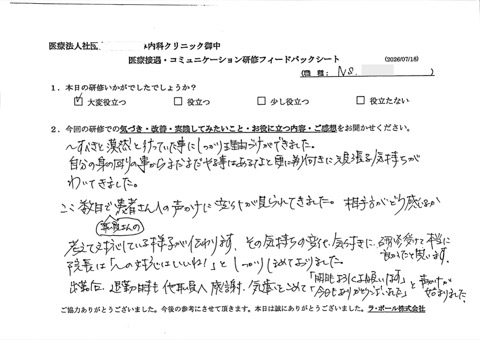 医療法人社団 内科クリニック御中
医療接遇・コミュニケーション研修フィードバックシート (2026/07/16)
(職種: NS.
1．本日の研修いかがでしたでしょうか？
☑大変役立つ □役立つ □少し役立つ □役立たない
2．今回の研修での気づき・改善・実践してみたいこと・お役に立つ内容・ご感想をお聞かせください。
～すべきと漠然と行っていた事にしっかり理由づけができました。
自分の身の回りの事からまだまだやる事はあるなと更に前向きに頑張る気持ちが
わいてきました。
ここ数日で患者さんへの声かけに変化が見られてきました。相手がどう感じるか
考えて対応している様子が伝わります。その気持ちの変化、気づきに、研修を受けて本当に
良かったと思います。
院長は「への対応はいいね！」としっかりほめておりました。
出勤時、退勤時も 感謝、気遣いをこめて「今日もよろしくお願いします」
「今日もありがとうございました」と声かけが
始まりました。
ご協力ありがとうございました。今後の参考にさせて頂きます。本日は誠にありがとうございました。ラ・ポール株式会社